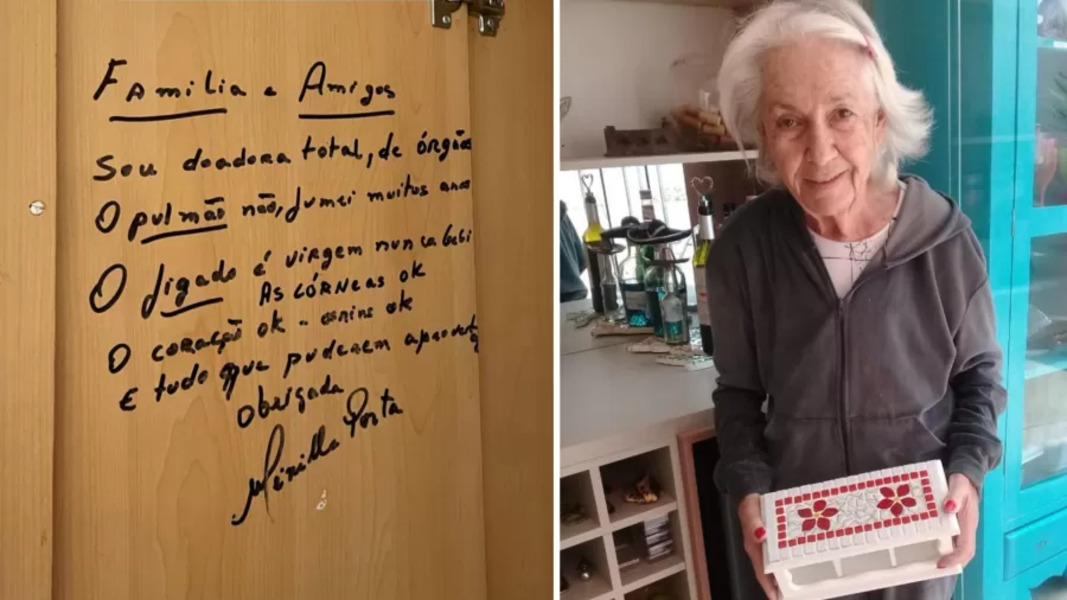 Familia e Amigos
Sou doadora total, de órgãos
O pulmão não, fumei muitos anos
O fígado é virgem nunca bebi
As córneas ok
O coração ok -
ok
E tudo que puderem aproveita
Obrigada
Porta